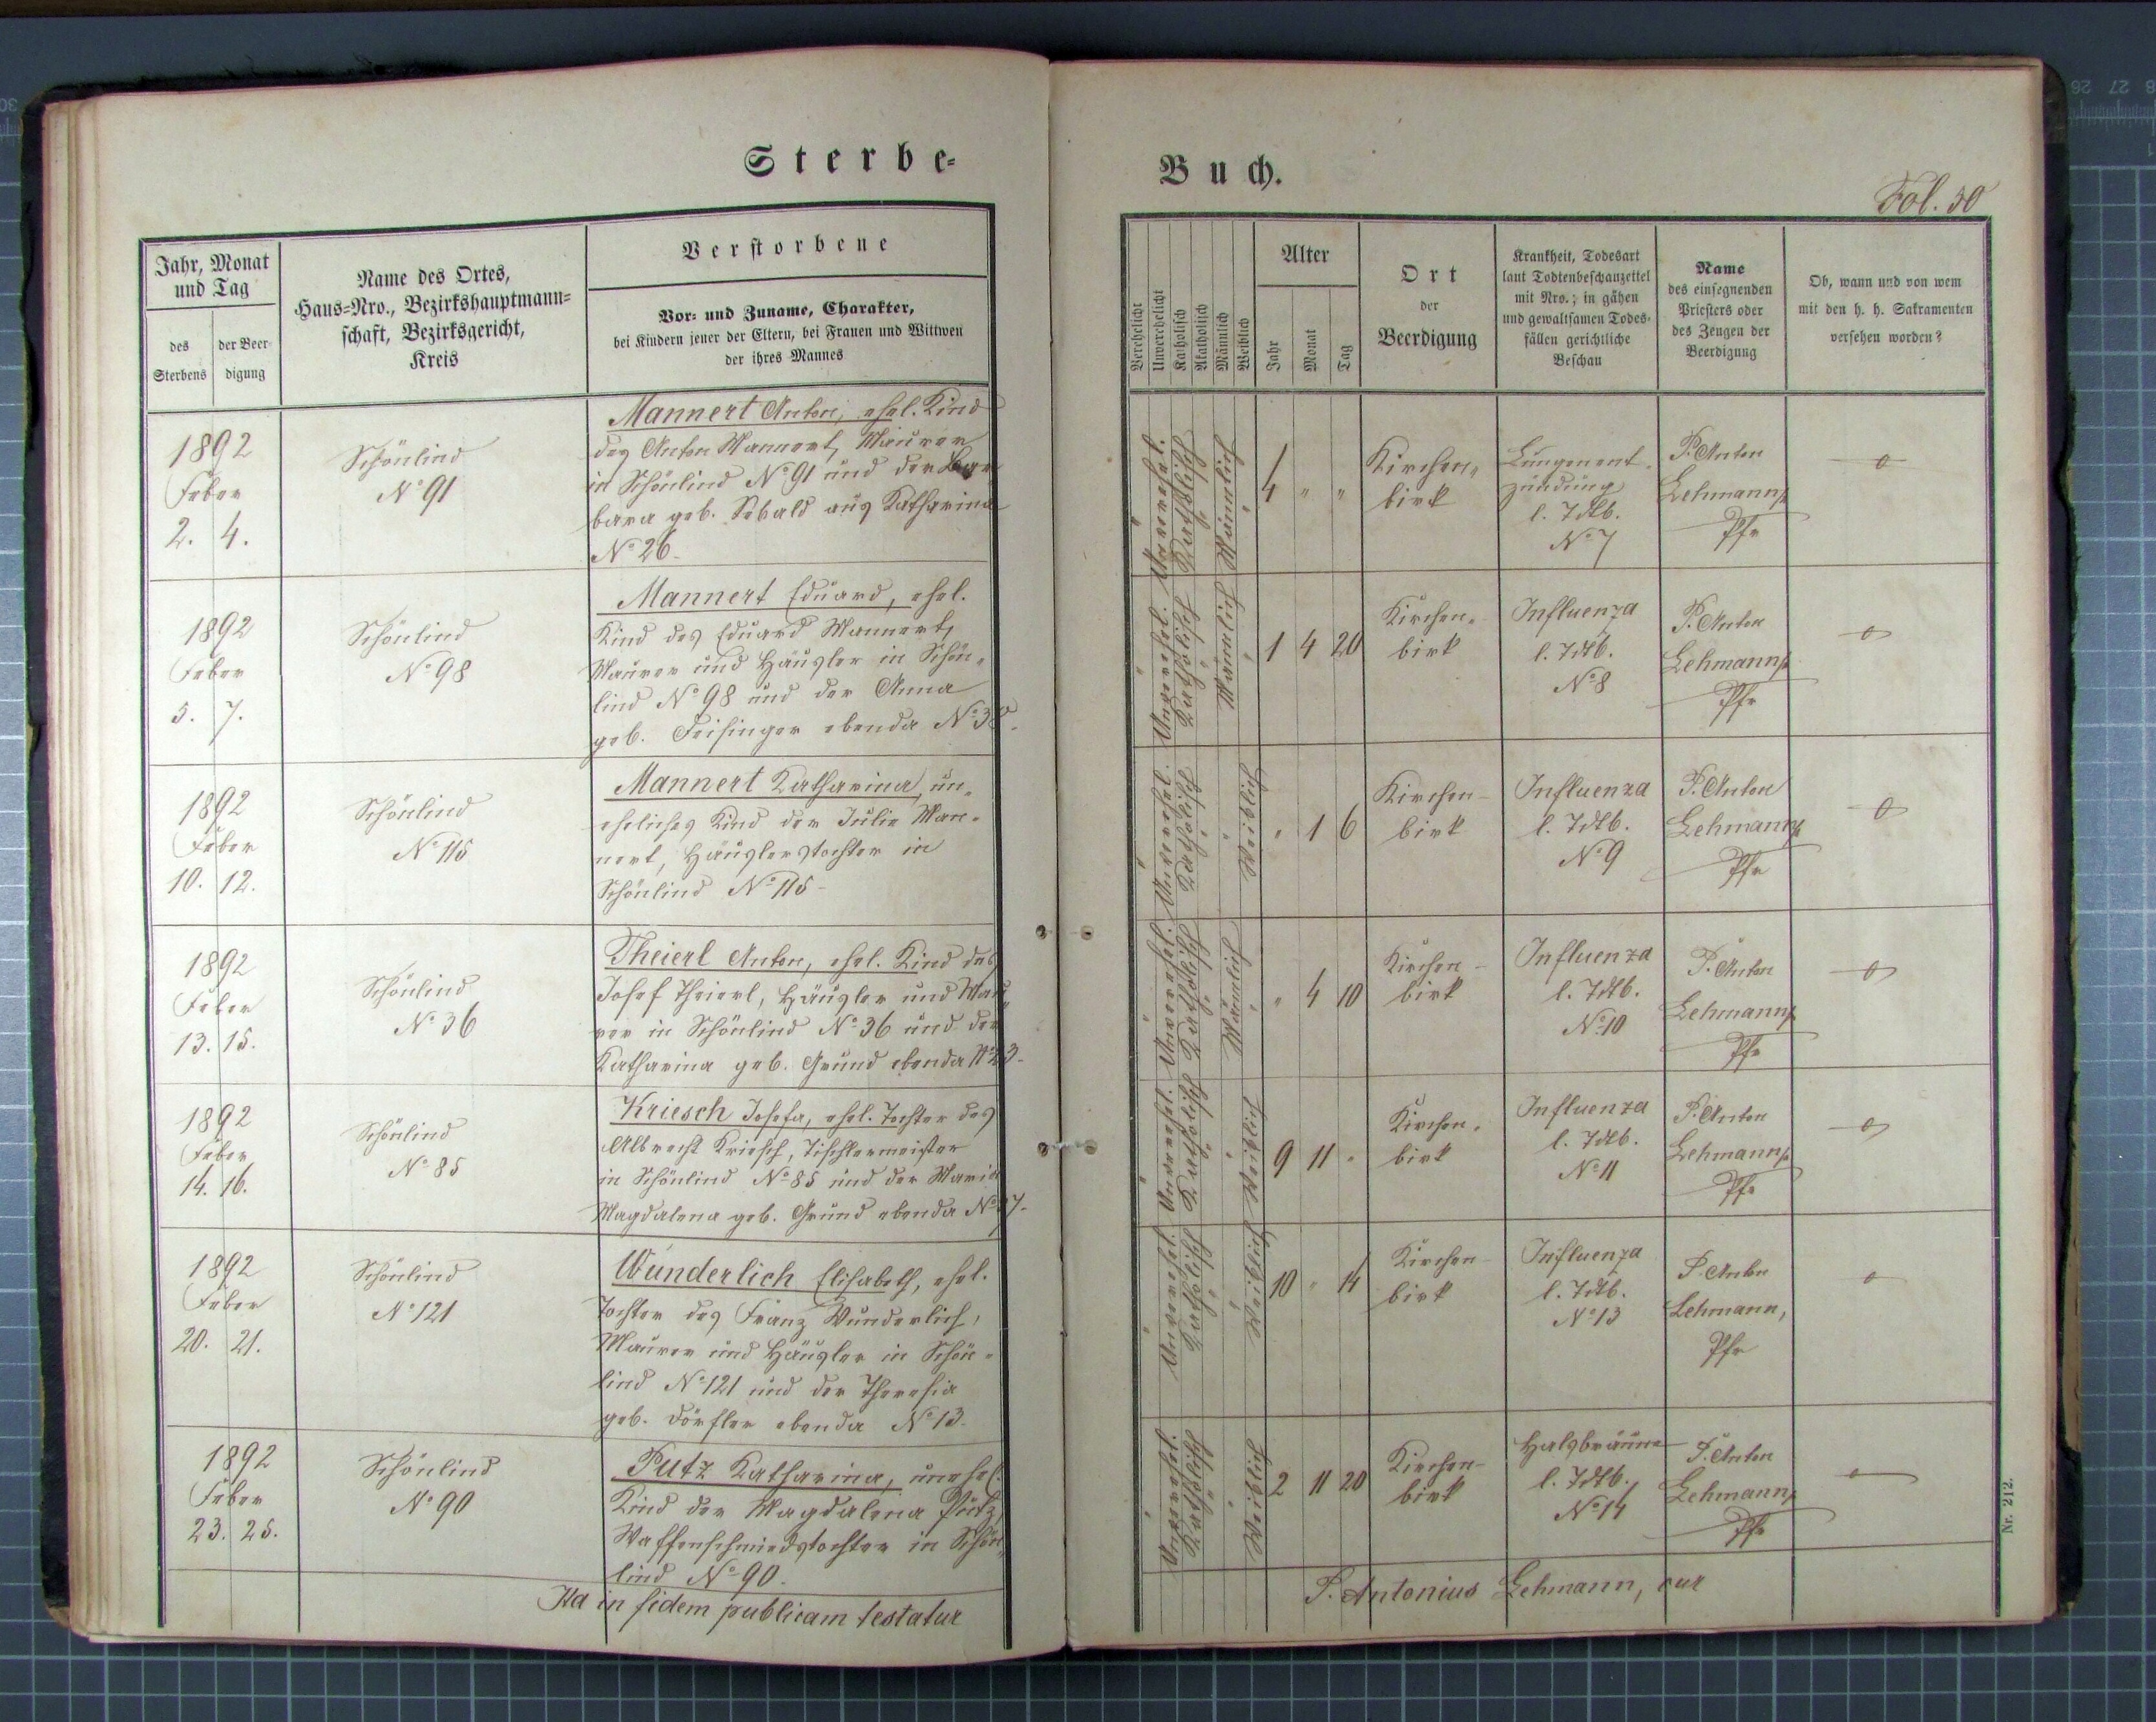 Sterbe-
Buch.
Fol. 30
Jahr, Monat
und Tag
des
Sterbens
der Beer-
digung
Name des Ortes,
Haus-Nro., Bezirkshauptmann-
schaft, Bezirksgericht,
Kreis
Verstorbene
Vor- und Zuname, Charakter,
bei Kindern jener der Eltern, bei Frauen und Wittwen
der ihres Mannes
Verehelicht
Unverehelicht
Katholisch
Akatholisch
Männlich
Weiblich
Alter
Jahr
Monat
Tag
Ort
der
Beerdigung
Krankheit, Todesart
laut Todtenbeschauzettel
mit Nro.; in gähen
und gewaltsamen Todes-
fällen gerichtliche
Beschau
Name
des einsegnenden
Priesters oder
des Zeugen der
Beerdigung
Ob, wann und von wem
mit den h. h. Sakramenten
versehen worden?
1892
Feber
2. 4.
Schönlind
No 91
Mannert Anton, ehel. Kind
des Anton Mannert, Maurer
in Schönlind No 91 und der Bar
bara geb. Sebald aus Katharina
No 26.
Unverehel.
Katholisch
Männlich
4 " "
Kirchen-
birk
Lungenent-
zündung
l. Tdtb.
No 7
P. Anton
Lehmann,
Pfr
1892
Feber
5. 7.
Schönlind
No 98
Mannert Eduard, ehel.
Kind des Eduard Mannert,
Maurer und Häusler in Schön-
lind No 98 und der Anna
geb. Feisinger ebenda
Unverehel.
Katholisch
Männlich
1 4 20
Kirchen-
birk
Influenza
l. Tdtb.
No 8
P. Anton
Lehmann,
Pfr
1892
Feber
10. 12.
Schönlind
No 115
Mannert Katharina, un-
eheliches Kind der Julie Man-
nert, Häuslerstochter in
Schönlind No 115-
Unverehel.
Katholisch
Weiblich
" 1 6
Kirchen-
birk
Influenza
l. Tdtb.
No 9
P. Anton
Lehmann,
Pfr
1892
Feber
13. 15.
Schönlind
No 36
Theierl Anton, ehel. Kind des
Josef Theierl, Häusler und Mau-
rer in Schönlind No 36 und der
Katharina geb. Grund ebenda
Unverehel.
Katholisch
Männlich
" 4 10
Kirchen-
birk
Influenza
l. Tdtb.
No 10
P. Anton
Lehmann,
Pfr
1892
Feber
14. 16.
Schönlind
No 85
Kriesch Josefa, ehel. Tochter des
Albrecht Kriesch, Tischlermeister
in Schönlind No 85 und der Maria
Magdalena geb. Grund ebenda
Unverehel.
Katholisch
Weiblich
9 11 "
Kirchen-
birk
Influenza
l. Tdtb.
No 11
P. Anton
Lehmann,
Pfr
1892
Feber
20. 21.
Schönlind
No 121
Wunderlich Elisabeth, ehel.
Tochter des Franz Wunderlich,
Maurer und Häusler in Schön-
lind No 121 und der Theresia
geb. Dörfler ebenda No 13.
Unverehel.
Katholisch
Weiblich
10 " 14
Kirchen-
birk
Influenza
l. Tdtb.
No 13
P. Anton
Lehmann,
Pfr
1892
Feber
23. 25.
Schönlind
No 90
Putz Katharina, unehel.
Kind der Magdalena Putz,
Waffenschmiedstochter in Schön-
lind No 90.
Unverehel.
Katholisch
Weiblich
2 11 20
Kirchen-
birk
Halsbräune
l. Tdtb.
No 14
P. Anton
Lehmann,
Pfr
Ita in fidem publicam testatur
P. Antonius Lehmann, cur
Nr. 212.